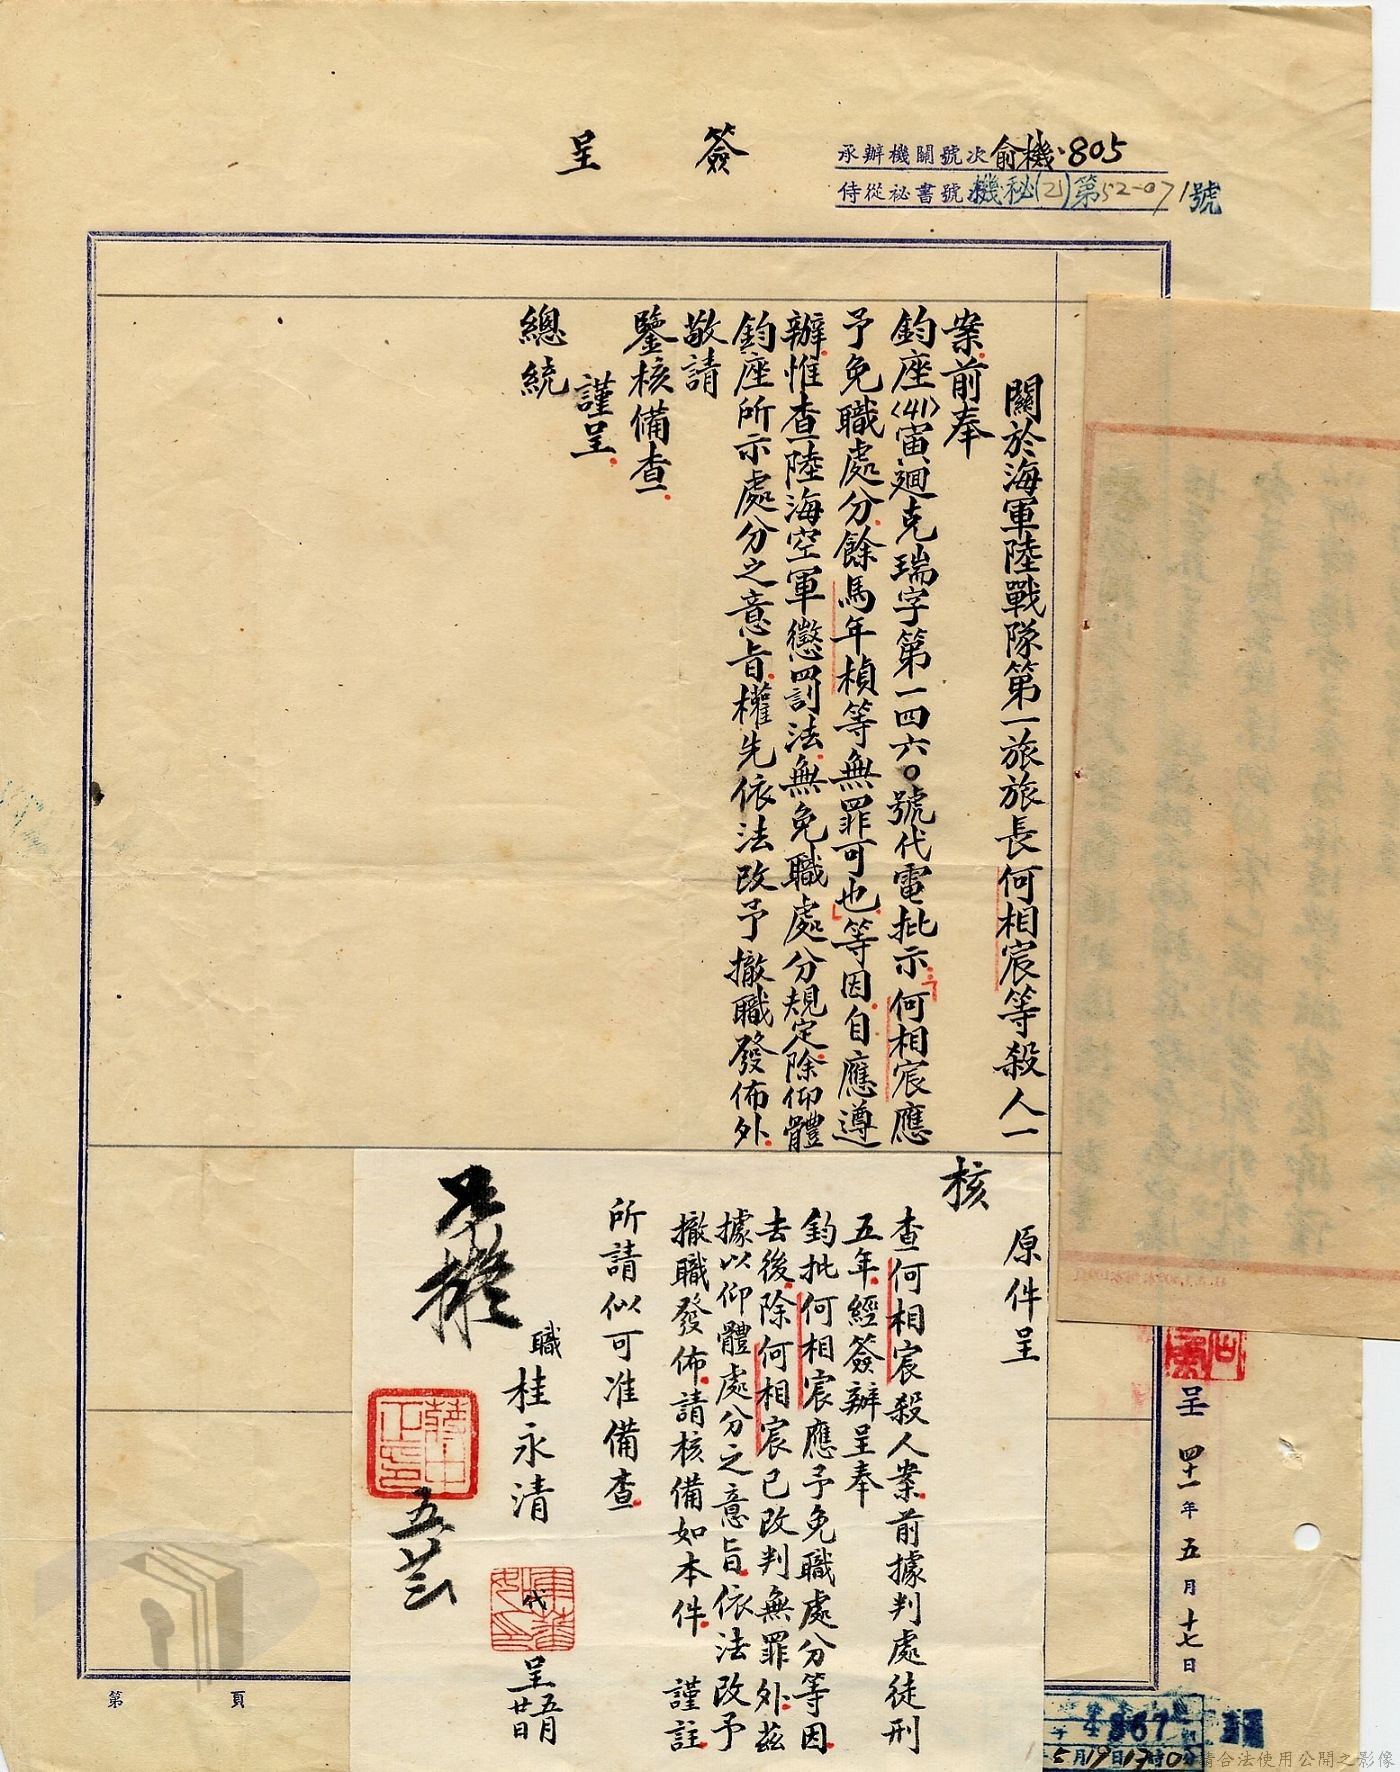 簽呈
承辦機關號次俞機·805
侍從祕書號次機秘(乙)第52-071號
關於海軍陸戰隊第一旅旅長何相宸等殺人一
案前奉
鈞座(41)寅迴克瑞字第一四六○號代電批示:「何相宸應
予免職處分餘馬年楨等無罪可也」等因自應遵
辦惟查陸海空軍懲罰法無免職處分規定除仰體
鈞座所示處分之意旨權先依法改予撤職發佈外
敬請
鑒核備查
謹呈
總統
原件呈
核
查何相宸殺人案前據判處徒刑
五年經簽辦呈奉
鈞批何相宸應予免職處分等因
去後除何相宸已改判無罪外茲
據以仰體處分之意旨依法改予
撤職發佈請核備如本件 謹註
所請似可准備查
職桂永清 代 呈五月廿日
呈 四十一年五月十七日
第 頁
4367
5月19日17時0分
請合法使用公開之影像